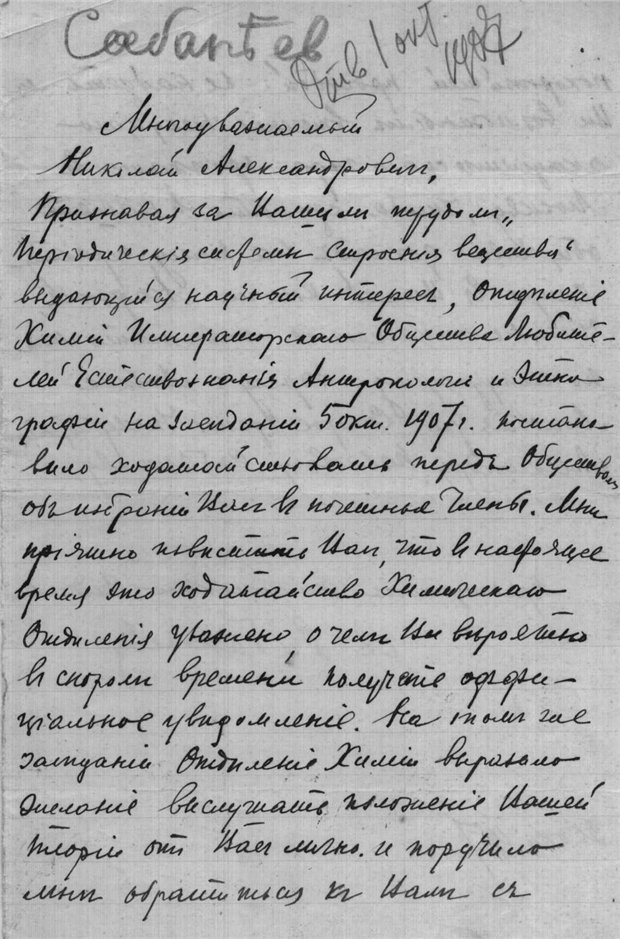 Сабанѣев
Отв 1 окт. 1907
Многоуважаемый
Николай Александрович,
Признавая за Вашим трудом „
Періодическія системы строенія вещества“
выдающійся научный интерес, Отдѣленіе
Химіи Императорскаго Общества Любите-
лей Естествознанія Антропологіи и Этно
графіи на засѣданіи 5 окт. 1907 г. постано
вило ходатайствовать передъ Обществом
объ избраніи Вас въ почетные члены. Мнѣ
пріятно повѣстить Вам, что въ настоящее
время это ходатайство Химическаго
Отдѣленія уважено, о чем Вы вѣроятно
в скором времени получите оффи-
ціальное увѣдомленіе. На том же
засѣданіи Отдѣленіе Химіи выразило
желаніе выслушать положеніе Вашей
теоріи от Вас лично и поручило
мнѣ обратиться къ Вам съ